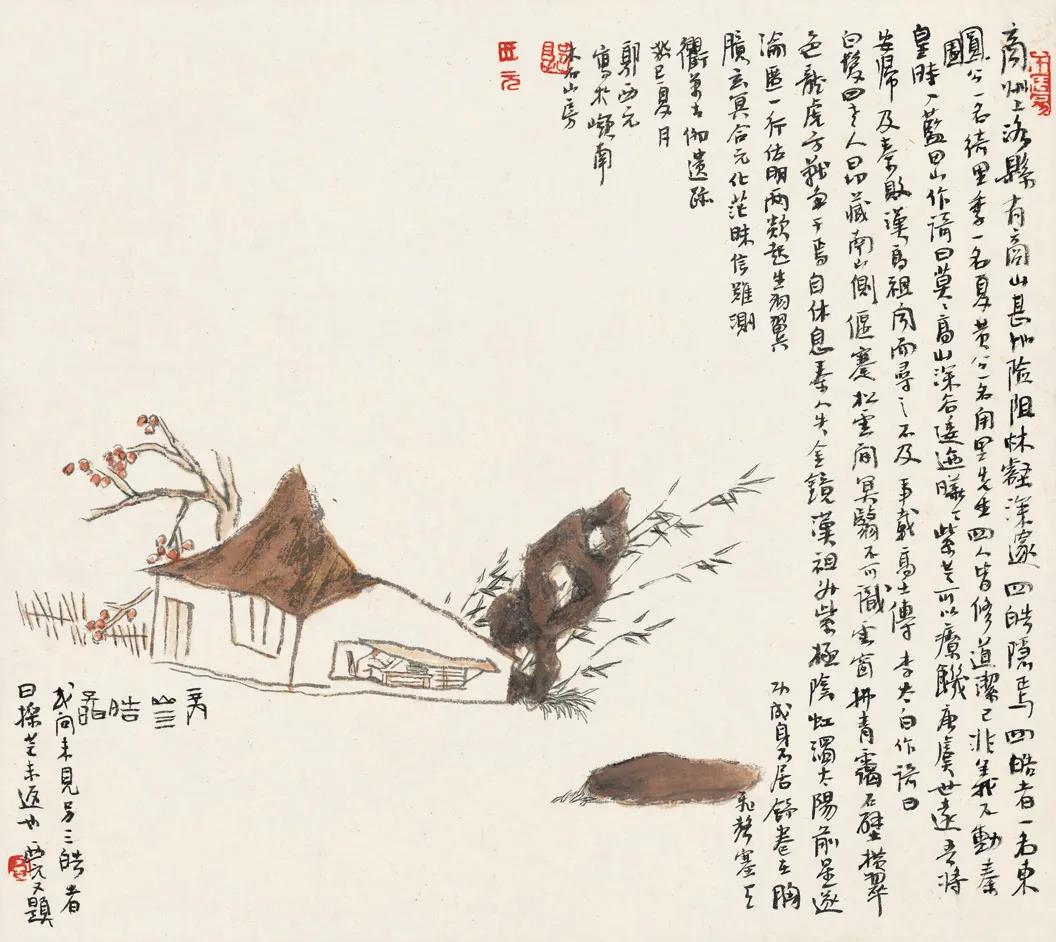 商州上洛縣有商山其地險阻林壑深邃四皓隱焉四皓者一名東
園公一名綺里季一名夏黃公一名甪里先生四人皆修道潔己非義不動秦
皇時入藍田山作謌曰莫〻高山深谷逶迤曄〻紫芝可以療饑唐虞世遠吾將
安歸及秦敗漢高祖聞而尋之不及事載高士傳李太白作謌曰
白髮四老人昂藏南山側偃蹇松雲間冥翳不可識雲窗拂青靄石壁橫翠
色龍虎方戰爭于焉自休息秦人失金鏡漢祖升紫極陰虹濁太陽前星遂
淪匿一行佐明兩欻起生羽翼功成身不居舒卷在胸
臆窅冥合元化茫昧信難測飛聲塞天
衢萬古仰遺跡
癸巳夏月
郭西元
寫於嶺南
朱石山房
西元
商山四皓圖
或問未見另三皓者
曰採芝未返也西元又題